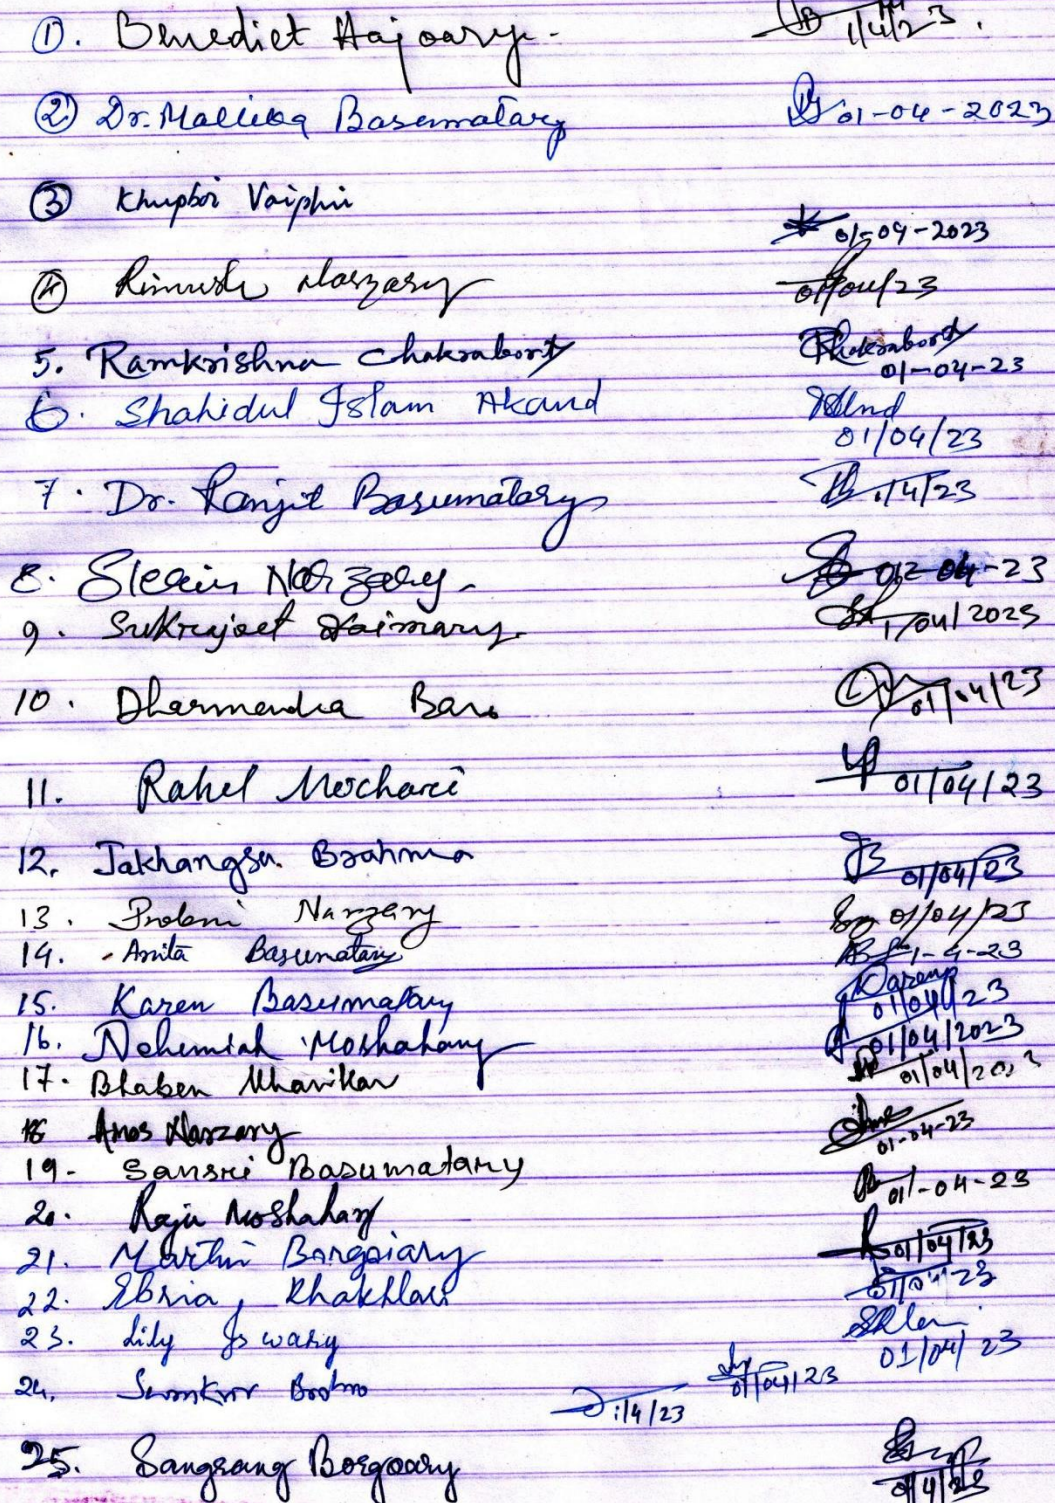 ①. Benedict Hajoary. 1/4/23.
② Dr. Mallika Basumatary 01-04-2023
③ Khupboi Vaiphei
01-04-2023
④ Narzary 01/04/23
5. Ramkrishna Chakraborty Chakraborty
01-04-23
6. Shahidul Islam Akand
01/04/23
7. Dr. Ranjit Basumatary 1/4/23
8. Narzary. 04-23
9. Sukrajeet Daimary 1/04/2023
10. Dharmendra Baro 01/04/23
11. Rahel Mochari 01/04/23
12. Jakhangsa. Brahma JB 01/04/23
13. Narzary 01/04/23
14. Anita Basumatary 1-4-23
15. Karen Basumatary
01/04/23
16. Nehemiah Moshahary 01/04/2023
17. Bhaben 01/04/2023
18 Amos Narzary
01-04-23
19- Sansri Basumatary 01-04-23
20. Raju Moshahary
21. Borgoiary 01/04/23
22. Ebria, Khakhlari 01/04/23
23. Lily Iswary
01/04/23
01/04/23
24. 1/4/23
25. Sangrang Borgoary
01/4/23